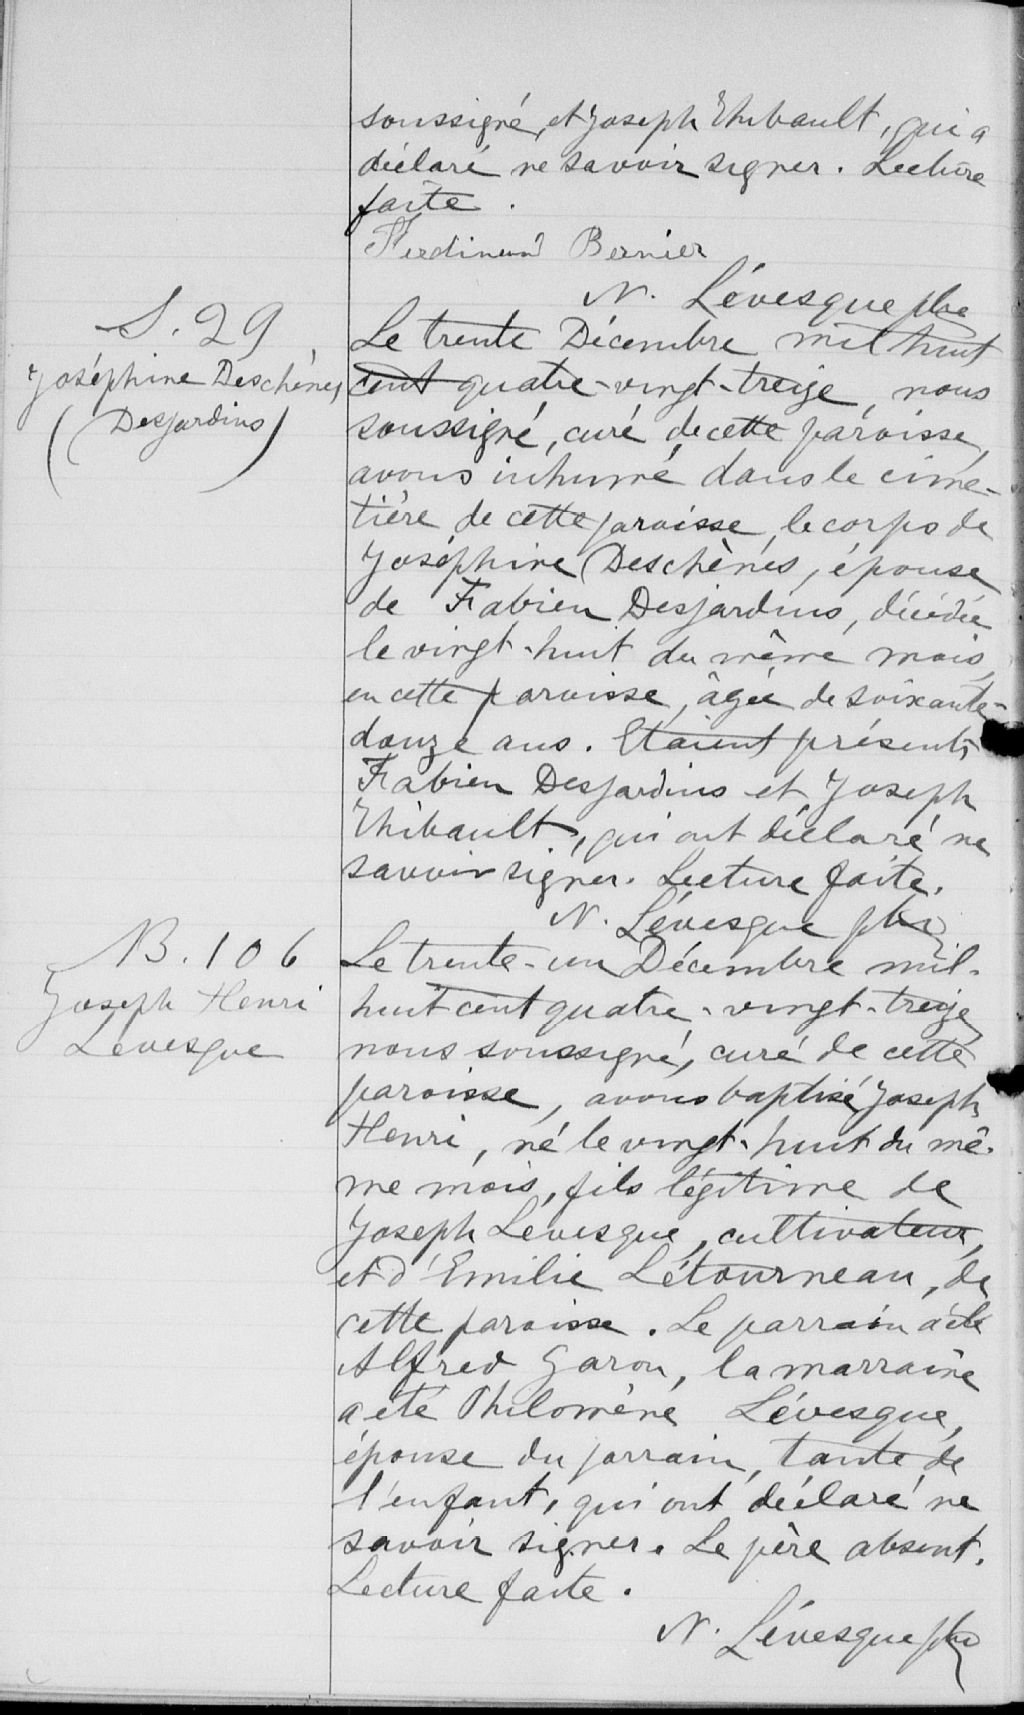 soussigné, et Joseph Thibault, qui a
déclaré ne savoir signer. Lecture
faite.
Ferdinand Bernier
N. Lévesque ptre
S. 29
Joséphine Deschênes
(Desjardins)
Le trente Décembre mil huit
cent quatre-vingt-treize, nous
soussigné, curé de cette paroisse,
avons inhumé dans le cime-
tière de cette paroisse, le corps de
Joséphine Deschênes, épouse
de Fabien Desjardins, décédée
le vingt-huit du même mois,
en cette paroisse, âgée de soixante-
douze ans. Etaient présents,
Fabien Desjardins et Joseph
Thibault, qui ont déclaré ne
savoir signer. Lecture faite.
N. Lévesque ptre
B. 106
Joseph Henri
Levesque
Le trente-un Décembre mil-
huit cent quatre-vingt-treize,
nous soussigné, curé de cette
paroisse, avons baptisé Joseph
Henri, né le vingt-huit du mê-
me mois, fils légitime de
Joseph Levesque, cultivateur,
et d'Emilie Létourneau, de
cette paroisse. Le parrain a été
Alfred Garon, la marraine
a été Philomène Lévesque,
épouse du parrain, tante de
l'enfant, qui ont déclaré ne
savoir signer. Le père absent.
Lecture faite.
N. Lévesque ptre